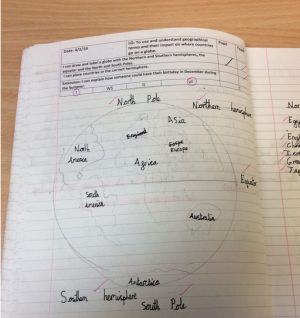 Date: 4/2/19
LO: To use and understand geographical terms and their impact on where countries go on a globe.
Pupil
I can draw and label a globe with the Northern and Southern hemispheres, the equator and the North and South Poles
I can place countries in the correct hemisphere.
Extension: I can explain how someone could have their birthday in December during the summer.
I
WS
G
North Pole
Northern hemisphere
Asia
England
North
America
Europe
Africa
South
America
Equator
Australia
Antarctica
Southen hemisphere
South Pole